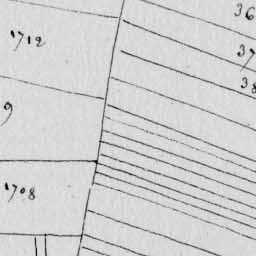 36
1712
37
38
9
1708